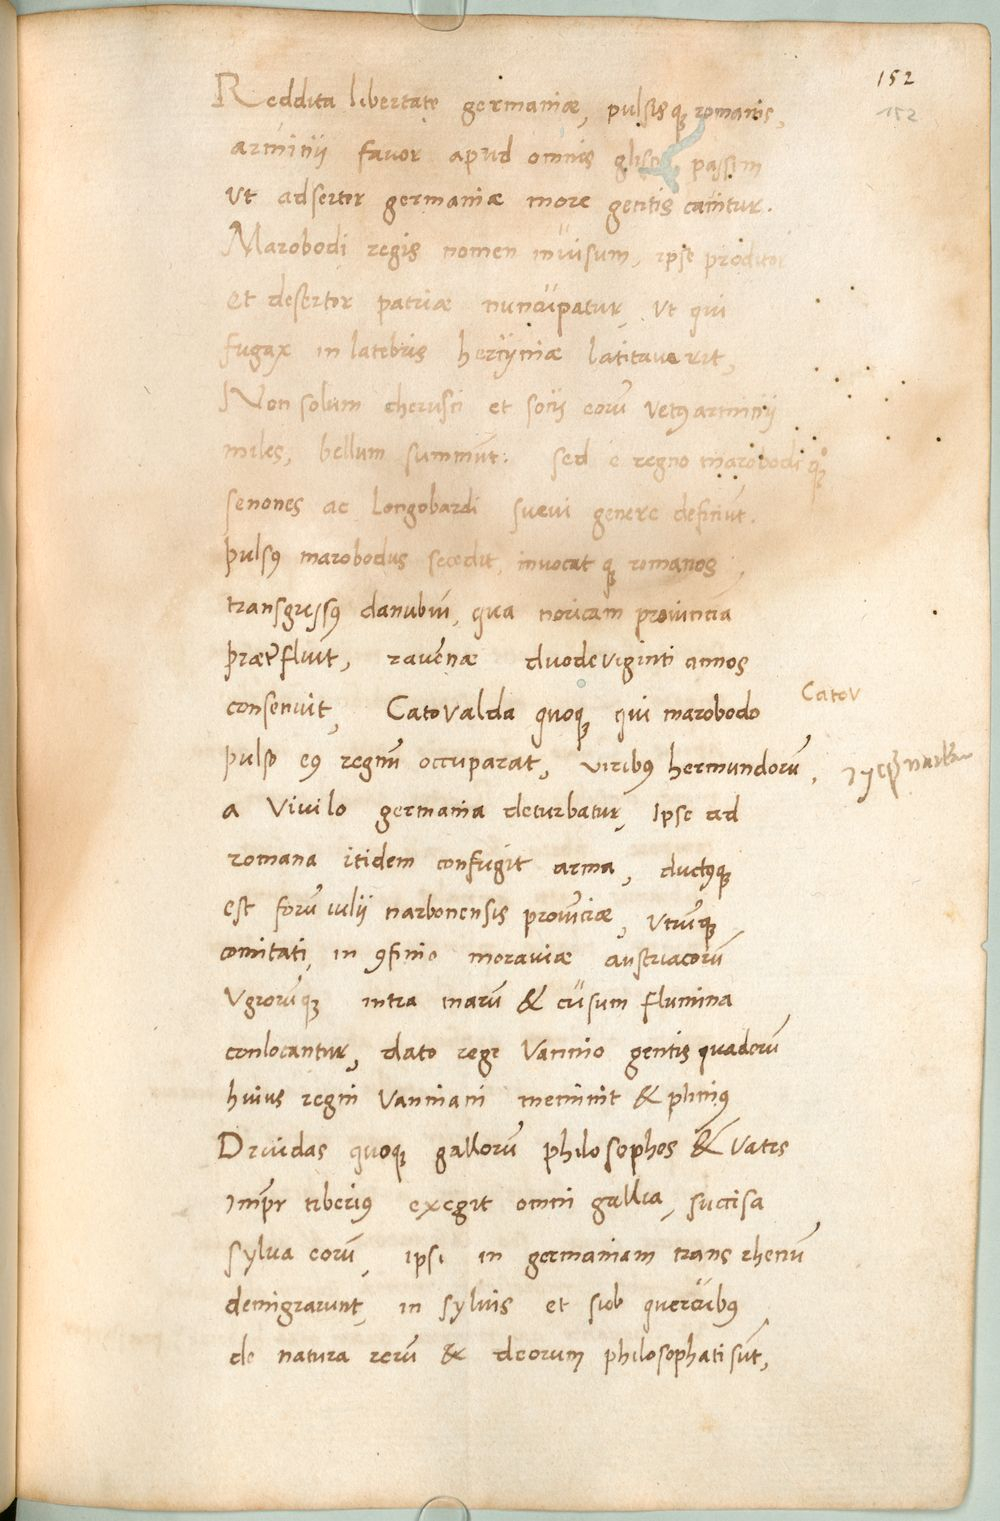 152
152
Reddita libertate germaniæ, pulsisq; romanis,
arminii favor apud omnis glisc passim
ut adsertor germaniæ more gentis canitur.
Marobodi regis nomen invisum, ipse proditor
et desertor patriæ nuncupatur, ut qui
fugax in latebris hercyniæ latitaverit,
Non solum cherusci et socii eorū vetꝯ arminii
miles, bellum sumūt: sed e regno marobodi q̨
senones ac Longobardi suevi genere deficiūt.
pulsꝯ marobodus secedit, invocatq; romanos,
transgressꝯ danubiū, qua noricam provinciā
præterfluit, ravēnæ duodeviginti annos
consenuit, Catovalda quoq; qui marobodo
Catov
pulso eꝯ regnū occuparat, viribꝯ hermundorū,
a Vivilo germania deturbatur, Ipse ad
romana itidem confugit arma, ductꝯq;
est forū iulii narbonensis provīciæ, Vtrūq;
comitati, in ꝯfinio moraviæ austriacorū
Vgrorūq; intra marū & cusum flumina
conlocantur, dato rege Vannio gentis quadorū
huius regni Vanniani meminit & pliniꝯ
Druidas quoq; gallorū philosophos & Vates
Imꝑr tiberiꝯ exegit omni gallia, succisa
sylva eorū, ipsi in germaniam trans rhenū
demigrarunt, in sylvis et sub quercubꝯ
de natura rerū & deorum philosophati sūt,